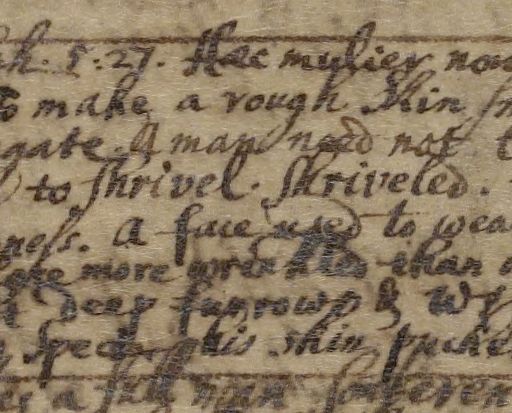 h. 5:27. Hæc mulier non
to make a rough skin sm
gate. A man need not t
to shrivel. Shriveled.
ness. A face used to wea
more wrinkles than a
deep furrows &
spect his skin pucke
a full